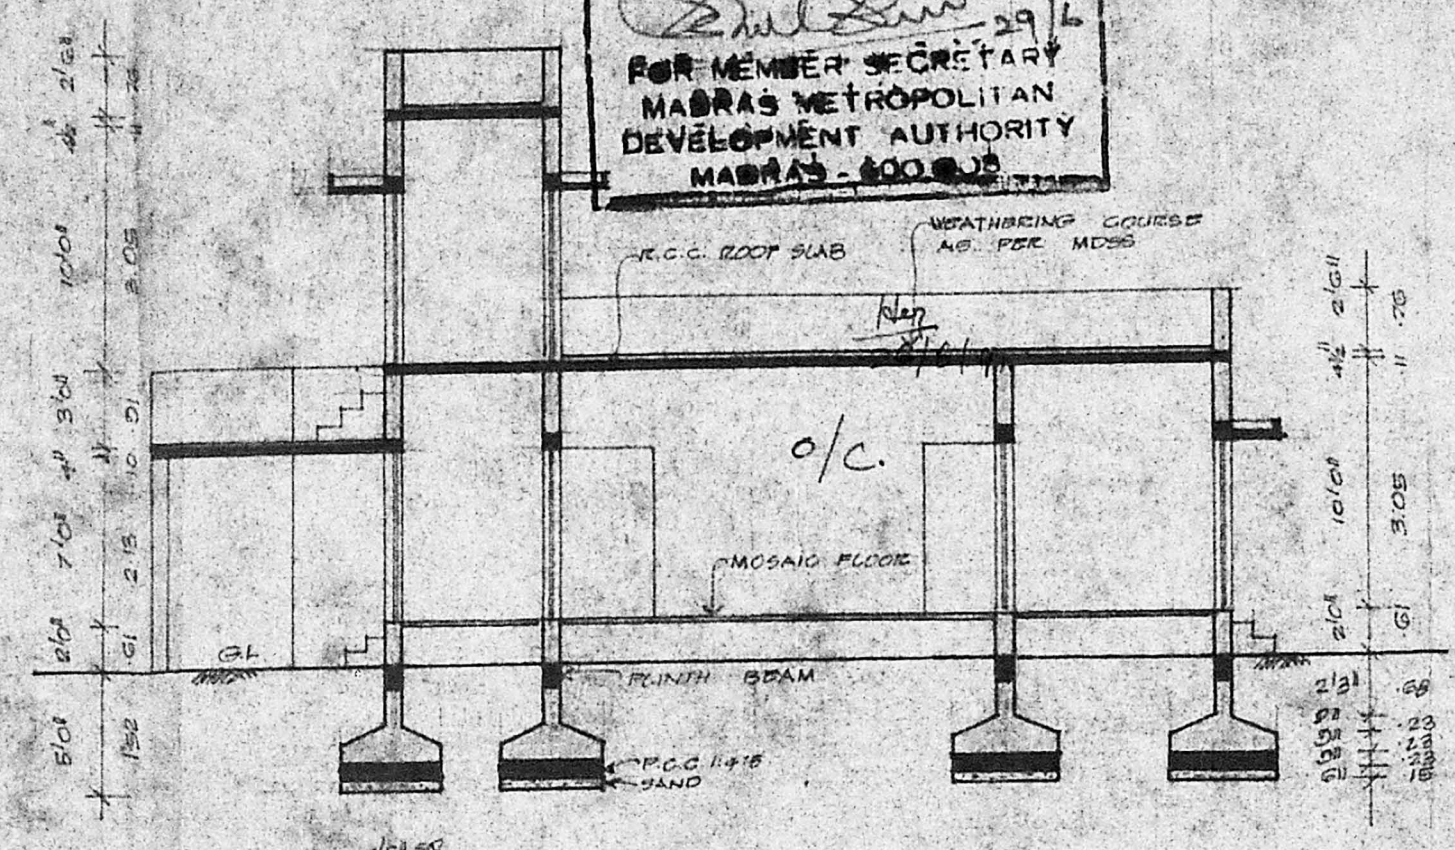 29/6
FOR MEMBER SECRETARY
MADRAS METROPOLITAN
DEVELOPMENT AUTHORITY
MADRAS - 600 008
WEATHERING COURSE
AS PER MDSS
R.C.C. ROOF SLAB
O/C.
MOSAIC FLOOR
G.L
PLINTH BEAM
P.C.C 1:4:8
SAND
2'6"
.76
4½"
.11
10'0"
3.05
3'0"
.91
4"
.10
7'0"
2.13
2'0"
.61
5'0"
1.52
2'6"
.76
4½"
.11
10'0"
3.05
2'0"
.61
2'3"
.68
9"
.23
9"
.23
9"
.23
6"
.15